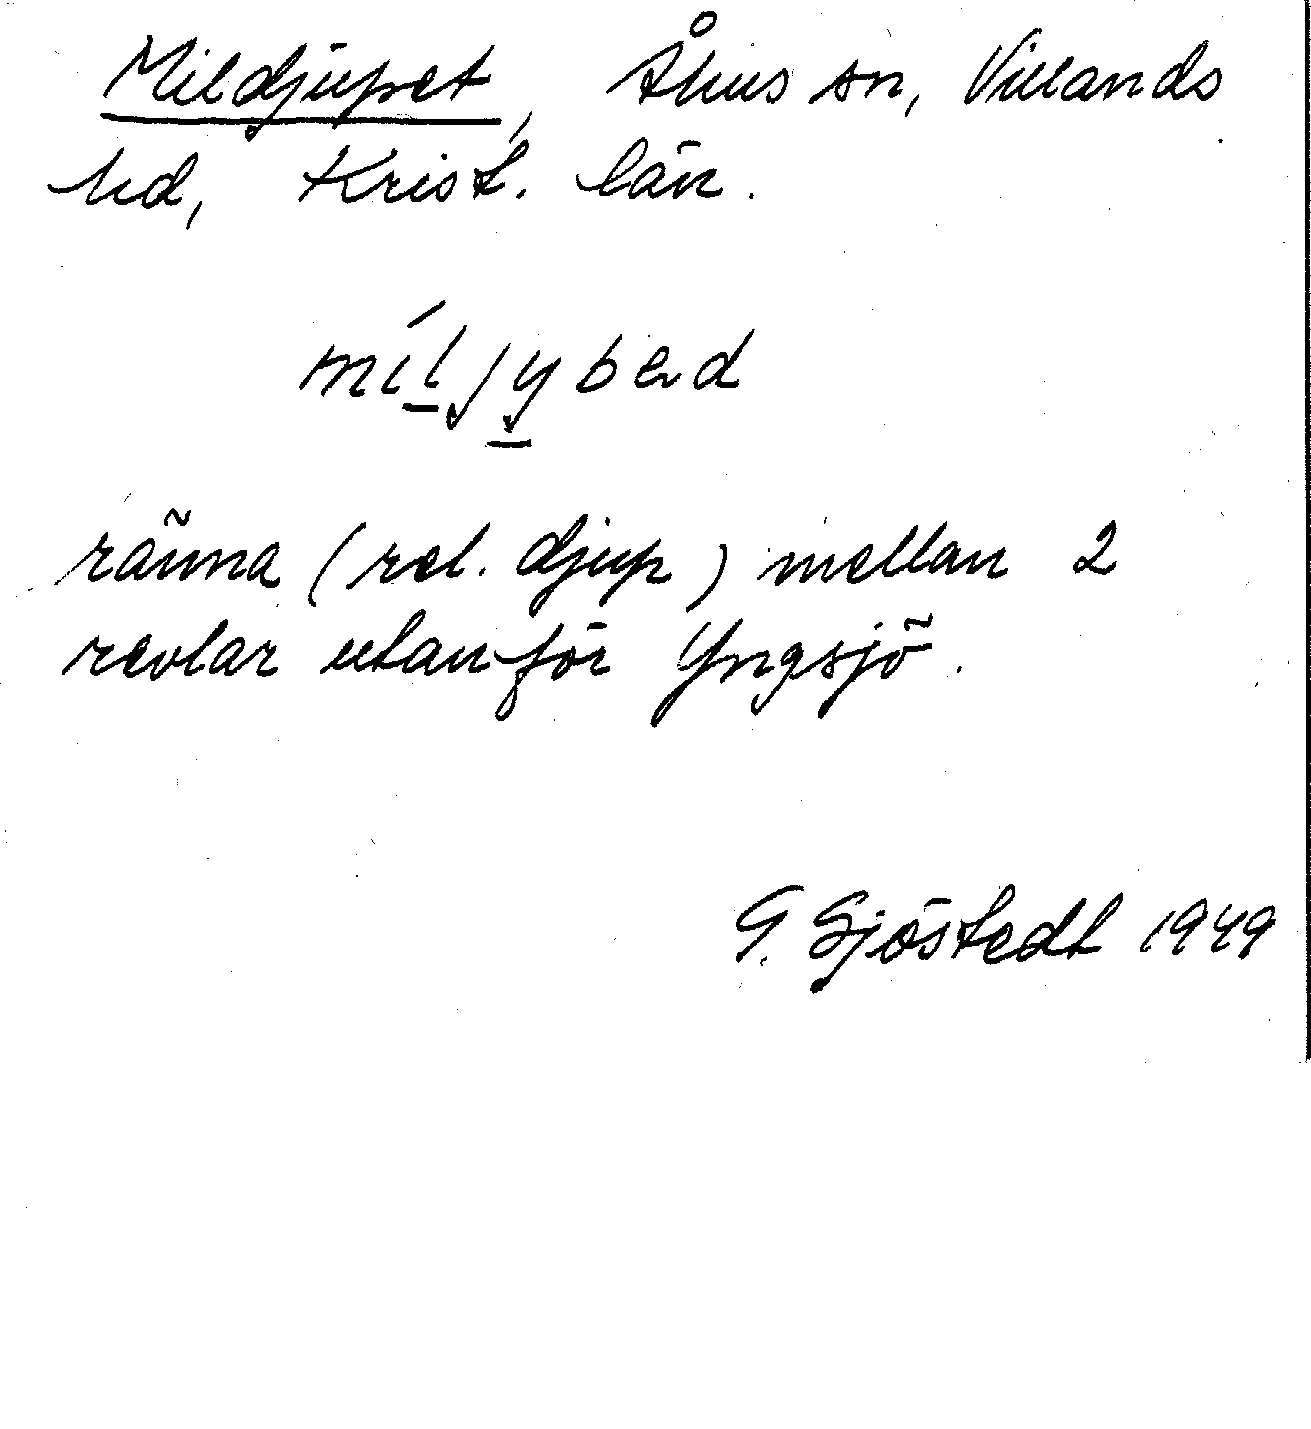 Mildjupet, Åhus sn, Villands
hd, Krist. län.
míljybad
ränna (rel. djup) mellan 2
revlar utanför Yngsjö.
G. Sjöstedt 1949